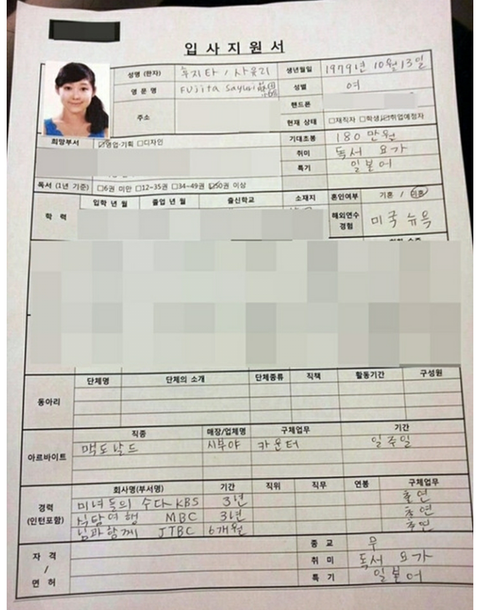 입사지원서
성명 (한자) 후지타 / 사유리 생년월일 1979년 10월 13일
영문명 Fujita Sayuri 성별 여
주소 핸드폰
현재 상태 □재직자 □학생 ☑취업예정자
희망부서 ☑영업·기획 □디자인 기대초봉 180만원
취미 독서 요가
특기 일본어
독서 (1년 기준) □6권 미만 □12~35권 □34~49권 ☑50권 이상
학력 입학년월 졸업년월 출신학교 소재지 혼인여부 기혼 / 미혼
해외연수 경험 미국 뉴욕
동아리 단체명 단체의 소개 단체종류 직책 활동기간 구성원
아르바이트 직종 매장/업체명 구체업무 기간
맥도날드 시부야 카운터 일주일
경력 (인턴포함) 회사명(부서명) 기간 직위 직무 연봉 구체업무
미녀들의 수다 KBS 3년 출연
식탐여행 MBC 3년 출연
님과함께 JTBC 6개월 출연
자격 / 면허 종교 무
취미 독서 요가
특기 일본어